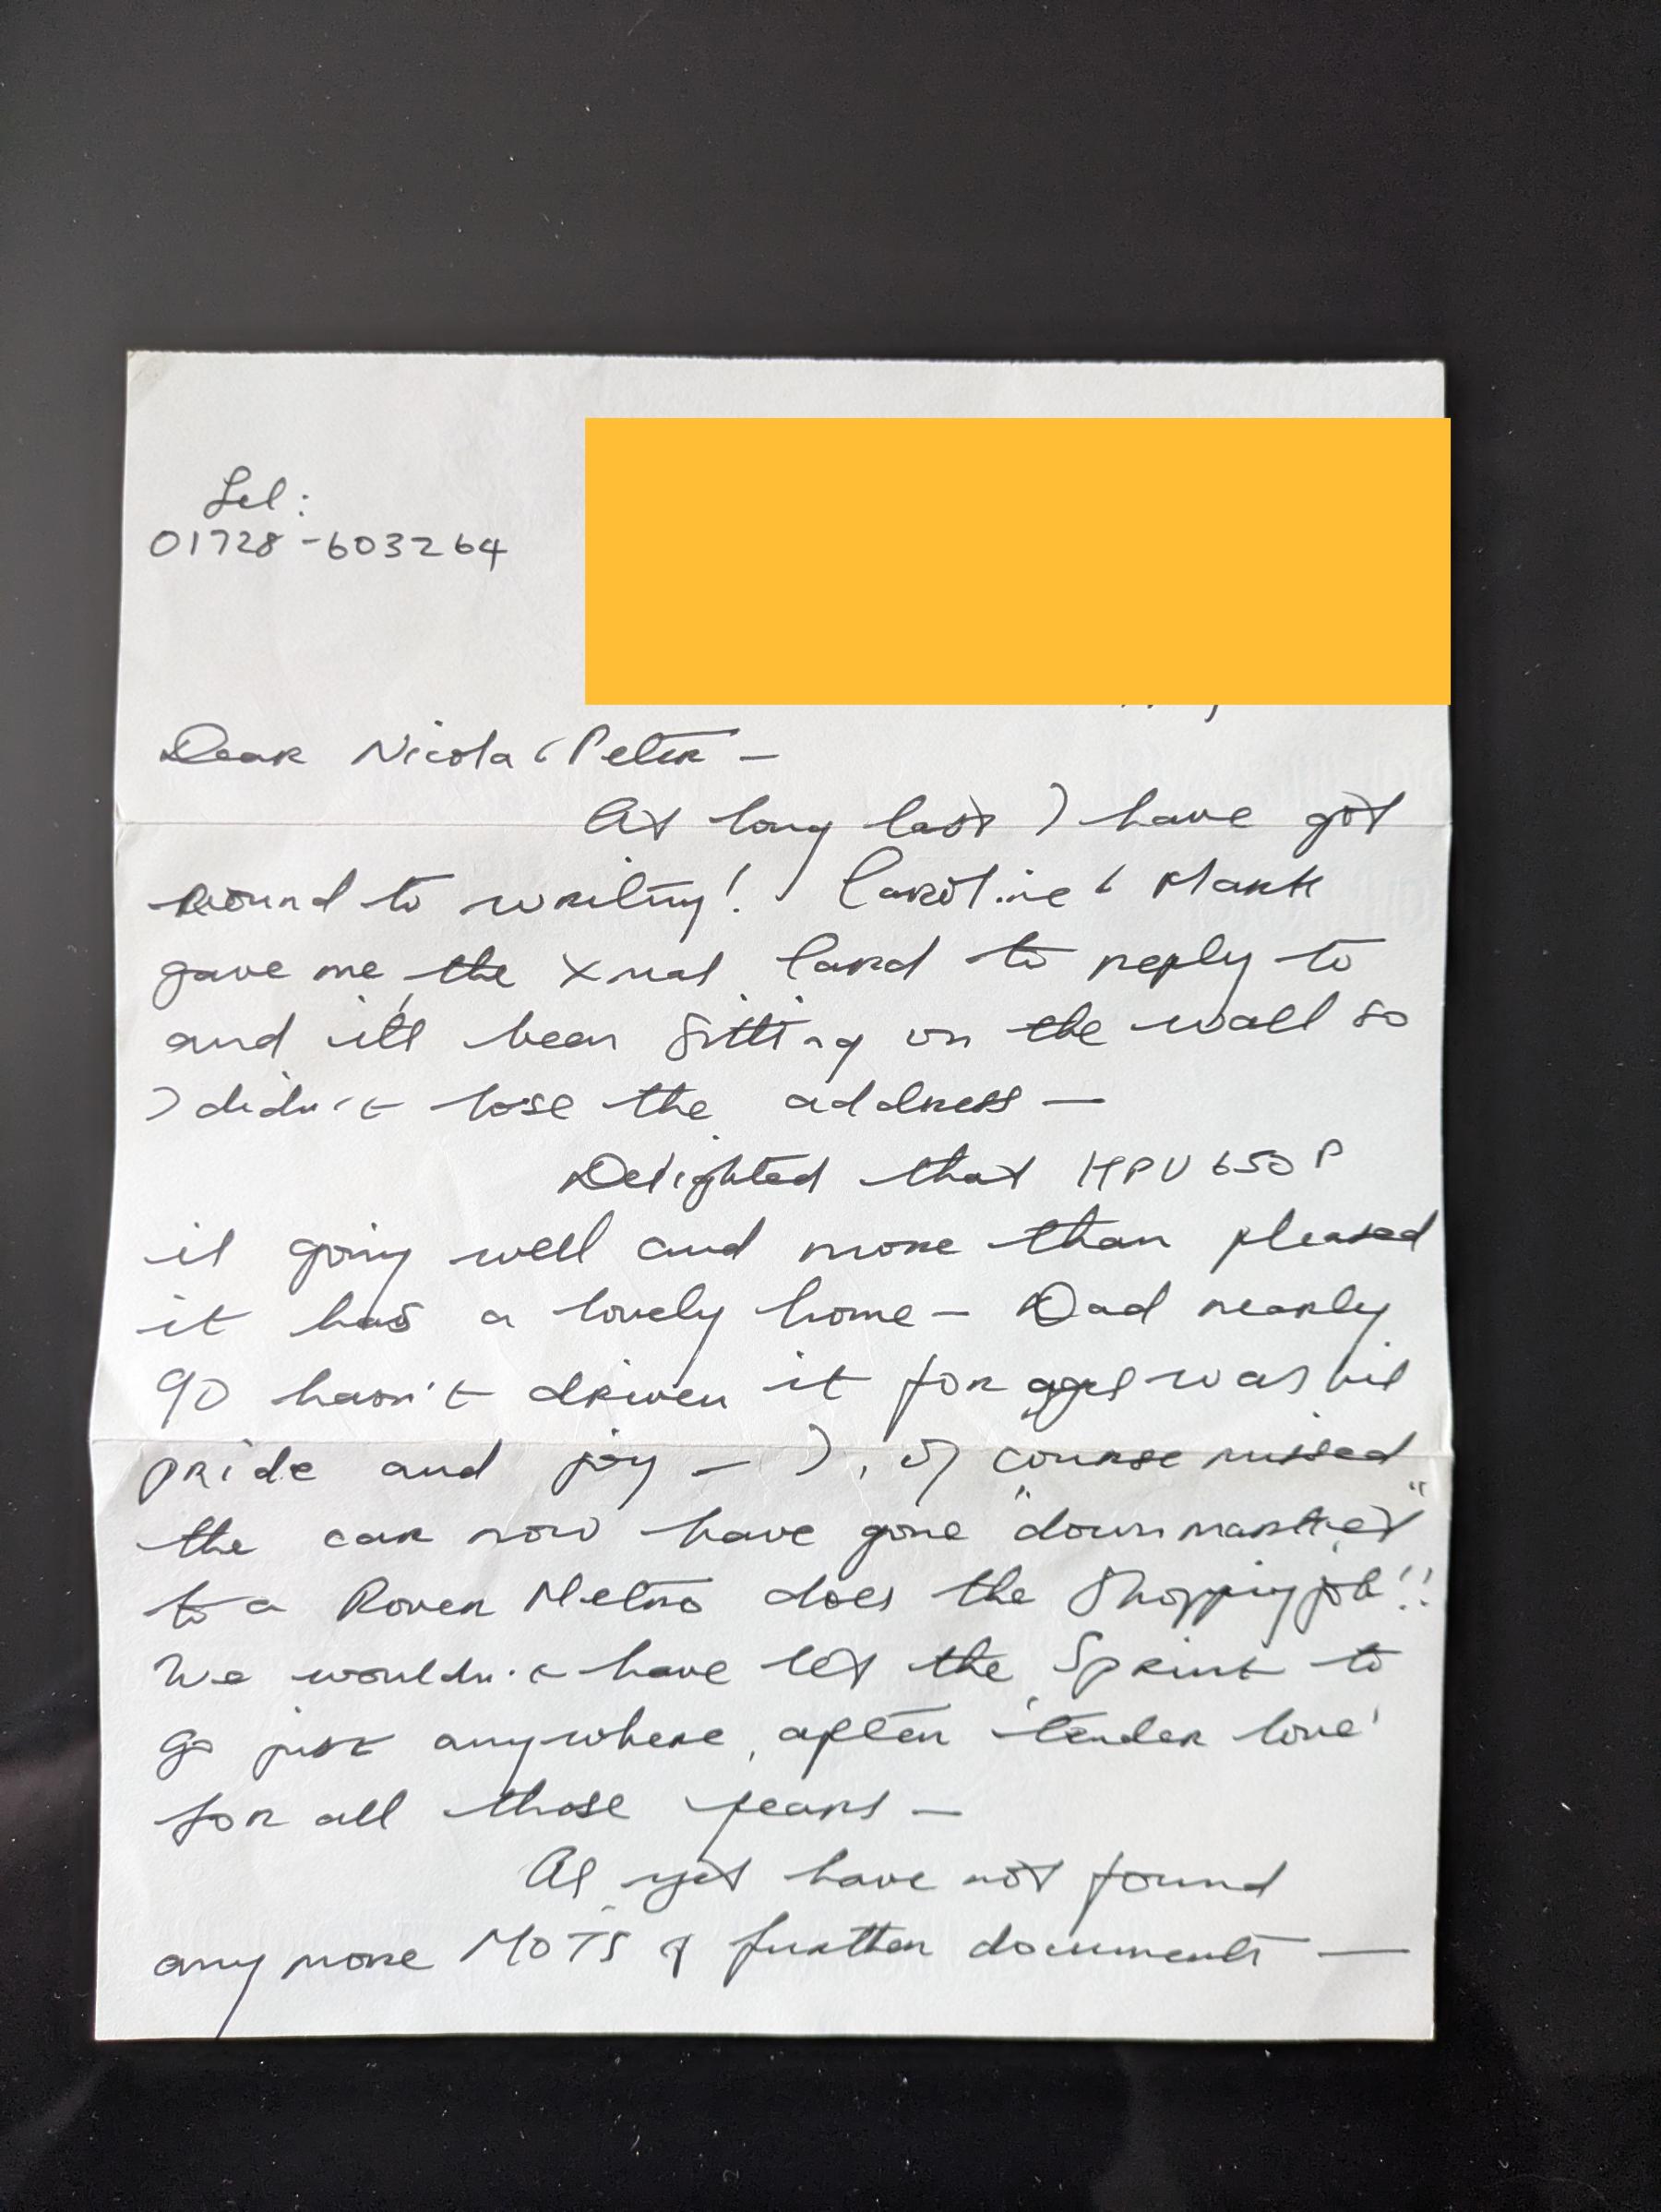 Tel:
01728-603264
Dear Nicola & Peter —
At long last I have got
round to writing! Caroline & Mark
gave me the Xmas Card to reply to
and it's been sitting on the wall so
I didn't lose the address —
Delighted that HPV 650 P
is going well and more than pleased
it has a lovely home — Dad nearly
90 hasn't driven it for ages was his
pride and joy — I, of course missed
the car now have gone "down market"
to a Rover Metro does the Shopping job!!
We wouldn't have let the Sprint to
go just anywhere, after 'tender love'
for all those years —
As yet have not found
any more MOTS & further documents —